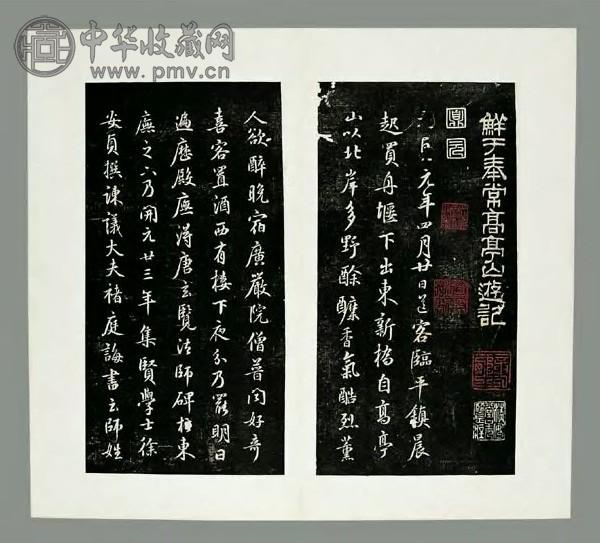 中华收藏网
www.pmv.cn
鮮于奉常高亭山遊記
元年四月廿日送客臨平鎮晨
起買舟堰下出東新橋自高亭
山以北岸多野酴醾香氣酷烈薰
人欲醉晚宿廣嚴院僧普閏好奇
喜客置酒西有樓下夜分乃罷明日
遍歷殿廡得唐玄覽法師碑極東
廡之下乃開元廿三年集賢學士徐
安貞撰諫議大夫褚庭誨書玄師姓